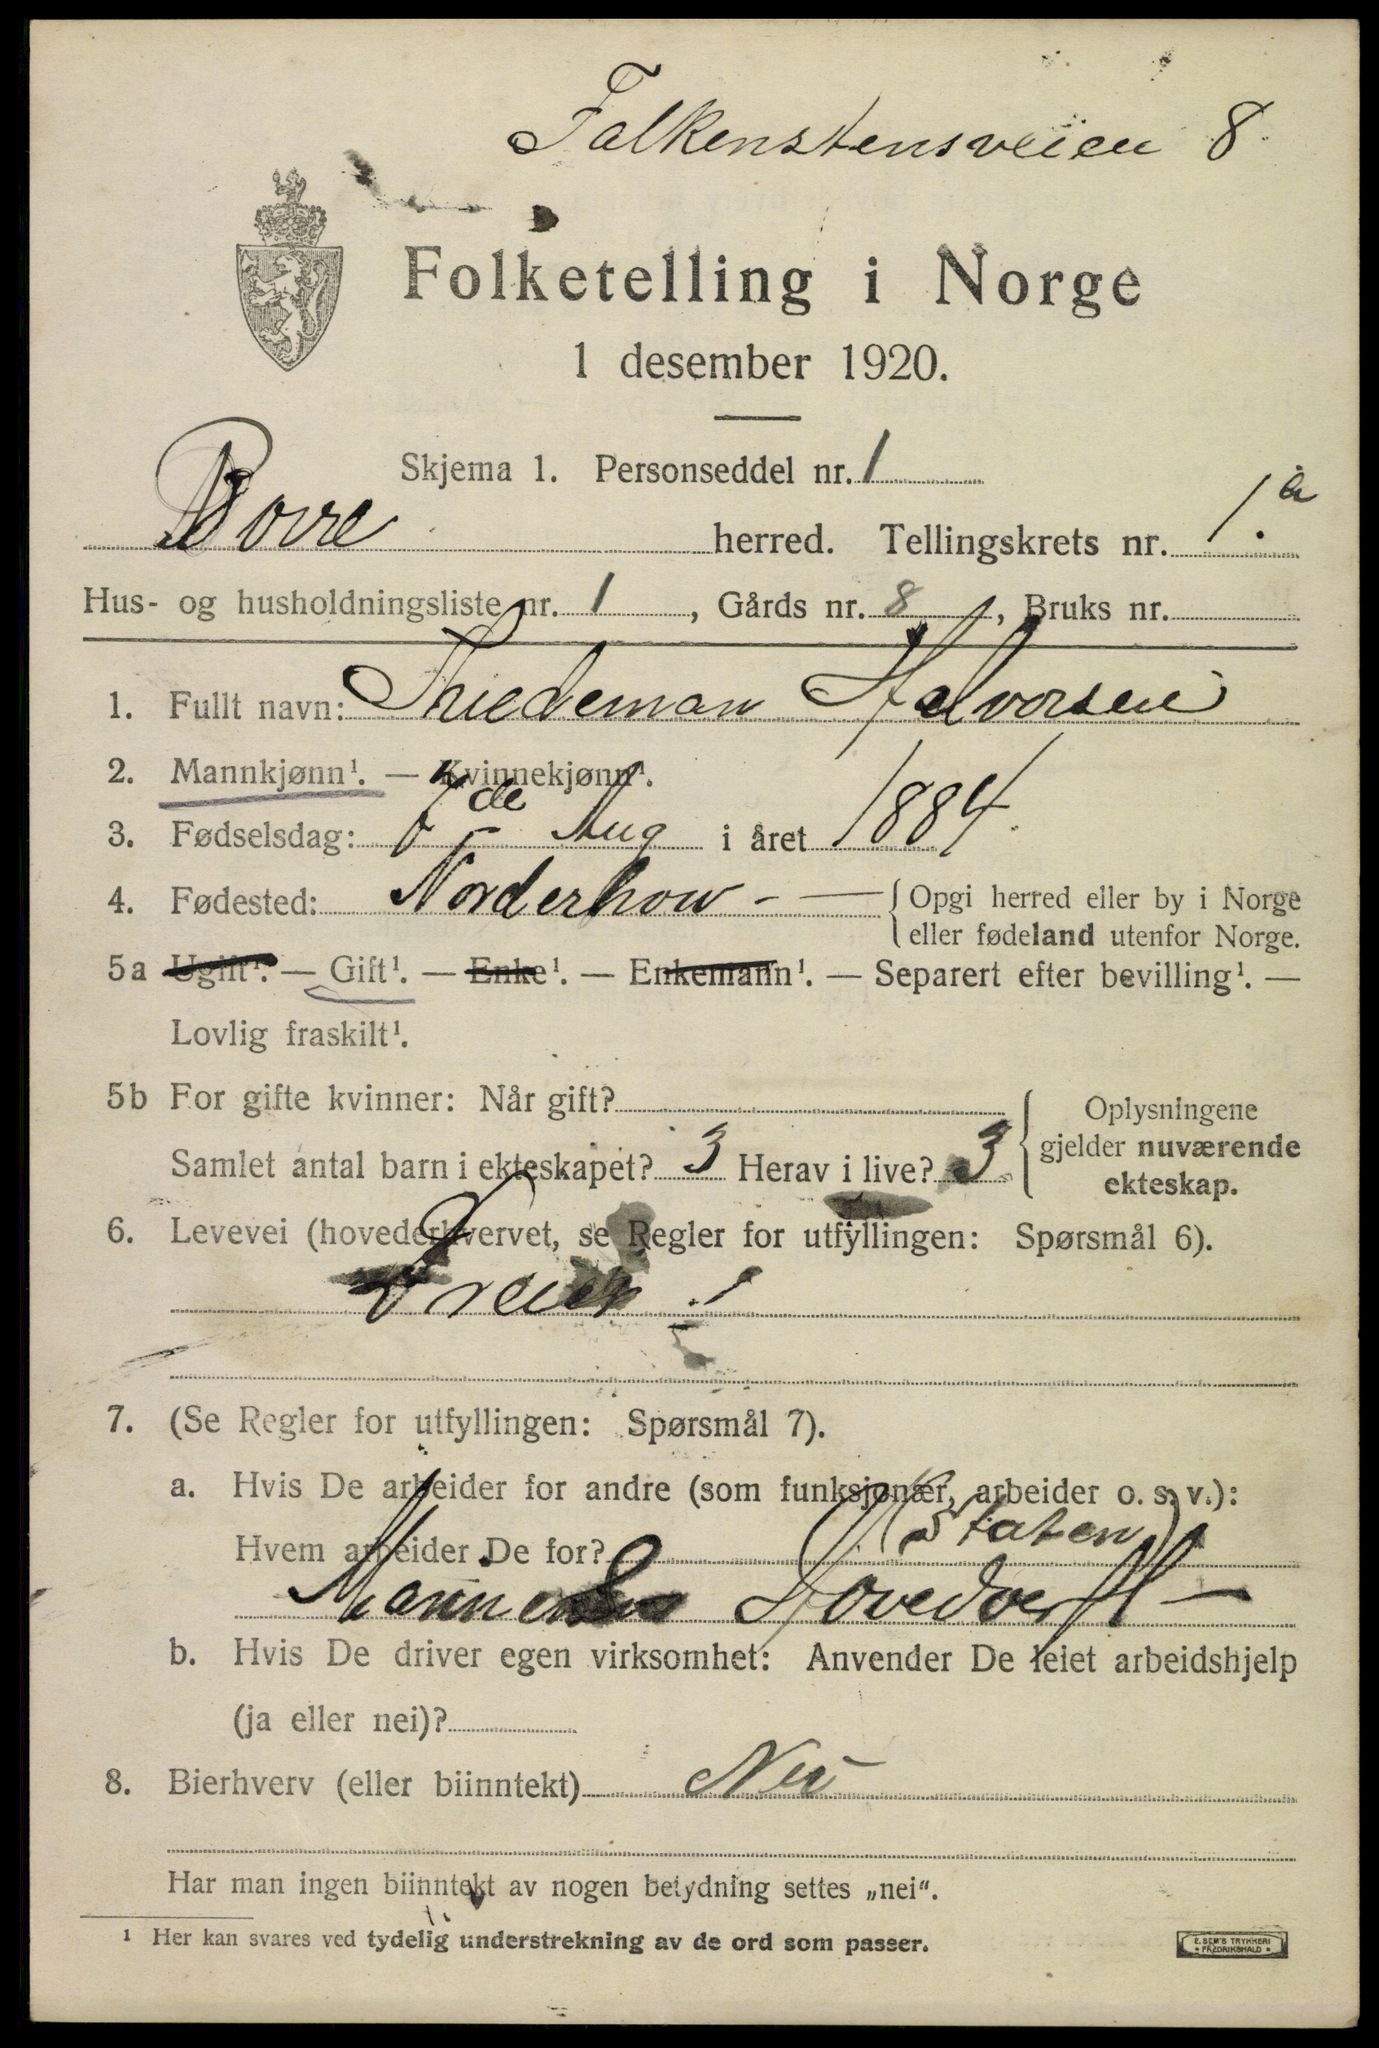 Falkenstensveien 8
Folketelling i Norge
1 desember 1920.
Skjema 1. Personseddel nr. 1
Borre herred. Tellingskrets nr. 1.a
Hus- og husholdningsliste nr. 1, Gårds nr. 8, Bruks nr.
1. Fullt navn: Halvorsen
2. Mannkjønn¹. — Kvinnekjønn¹.
3. Fødselsdag: 7de Aug i året 1884.
4. Fødested: Norderhow - — { Opgi herred eller by i Norge
eller fødeland utenfor Norge.
5a Ugift¹. — Gift¹. — Enke¹. — Enkemann¹. — Separert efter bevilling¹. —
Lovlig fraskilt¹.
5b For gifte kvinner: Når gift?
Samlet antal barn i ekteskapet? 3 Herav i live? 3
Oplysningene
gjelder nuværende
ekteskap.
6. Levevei (hovederhvervet, se Regler for utfyllingen: Spørsmål 6).
Dreier
7. (Se Regler for utfyllingen: Spørsmål 7).
a. Hvis De arbeider for andre (som funksjonær, arbeider o. s. v.):
Hvem arbeider De for? (Staten)
Marinens Hovedverft —
b. Hvis De driver egen virksomhet: Anvender De leiet arbeidshjelp
(ja eller nei)?
8. Bierhverv (eller biinntekt) Nei
Har man ingen biinntekt av nogen betydning settes „nei“.
¹ Her kan svares ved tydelig understrekning av de ord som passer.
E. SEM'S TRYKKERI
FREDRIKSHALD